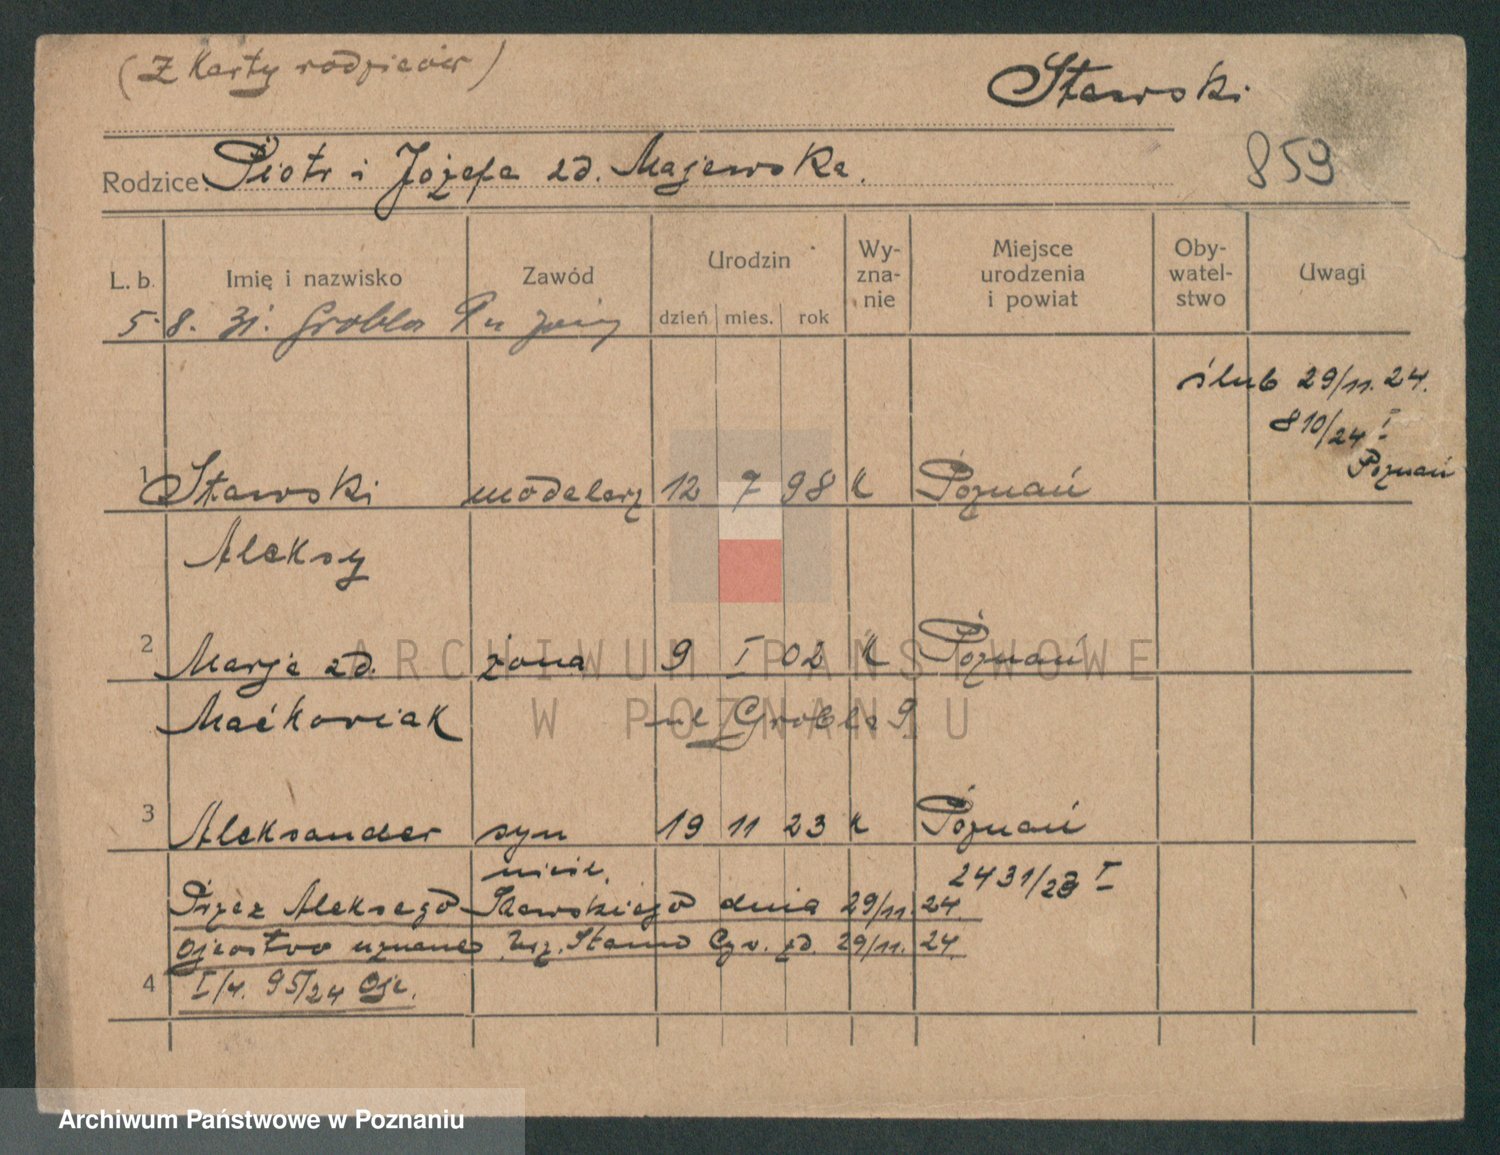 (Z Karty rodziców)
Stawski
859
Rodzice: Piotr i Józefa zd. Majewska.
L. b. Imię i nazwisko Zawód Urodzin dzień mies. rok Wy-zna-nie Miejsce urodzenia i powiat Oby-watel-stwo Uwagi
5. 8. 31. Grobla
ślub 29/11. 24.
810/24 I
Poznań
1 Stawski modelarz 12 7 98 K Poznań
Aleksy
2 Marja zd. żona 9 I 02 K Poznań
Maćkowiak ul Grobla 9
3 Aleksander syn 19 11 23 K Poznań
nieśl. 2431/23 I
Przez Aleksego Stawskiego dnia 29/11. 24.
ojcostwo uznane Urz. Stanu Cyw. zd. 29/11. 24.
4 95/24
ARCHIWUM PAŃSTWOWE
W POZNANIU
Archiwum Państwowe w Poznaniu